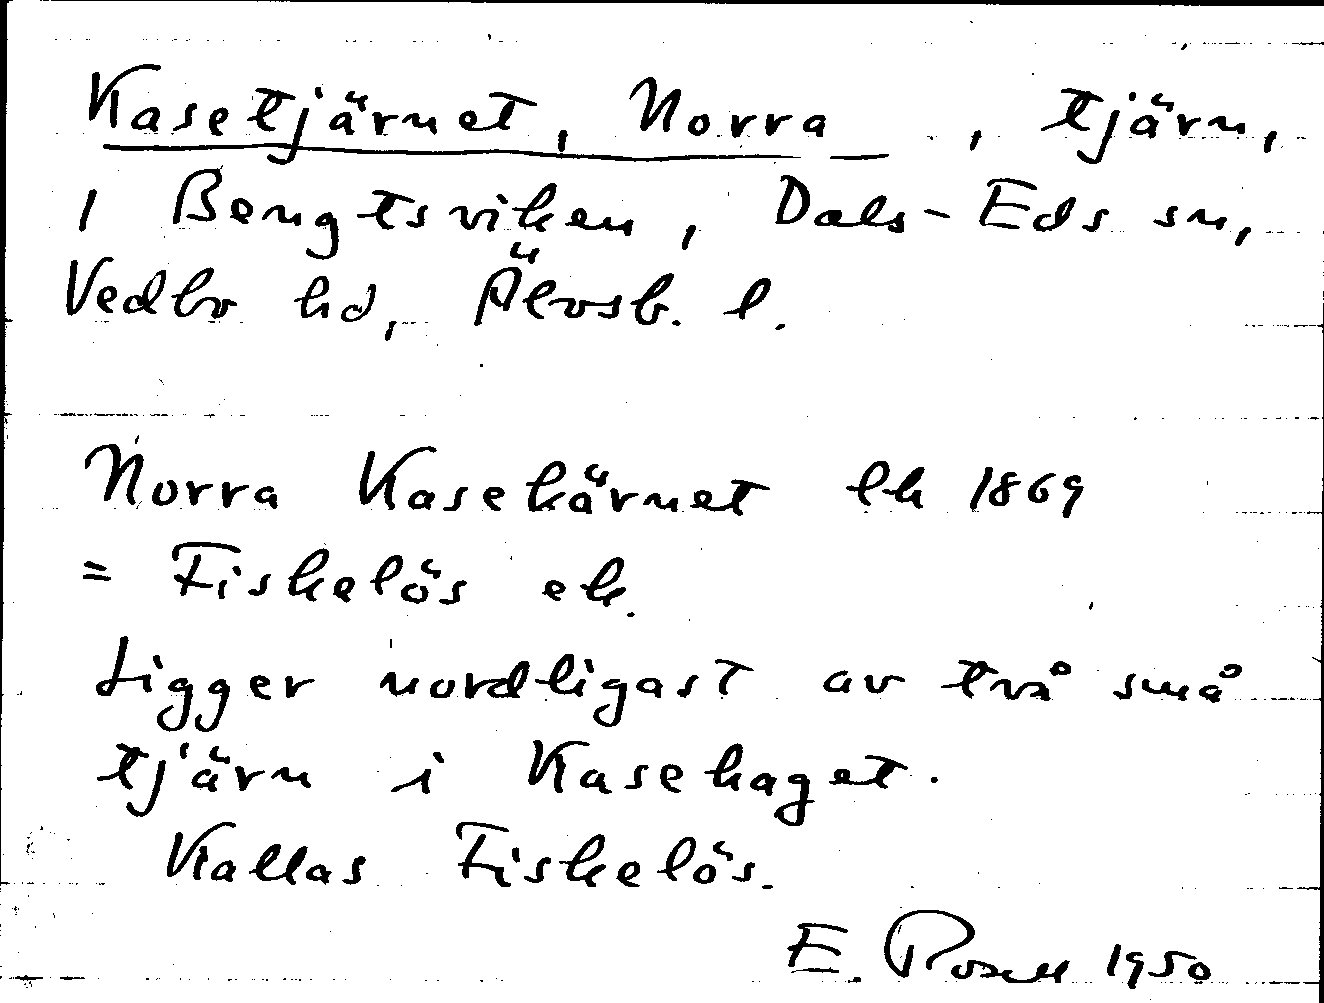 Kasetjärnet, Norra, tjärn,
i Bengtsviken, Dals-Eds sn,
Vedbo hd, Älvsb. l.
Norra Kasekärnet lk 1869
= Fiskelös ek.
Ligger nordligast av två små
tjärn i Kasehaget.
Kallas Fiskelös.
E. Rosell 1950